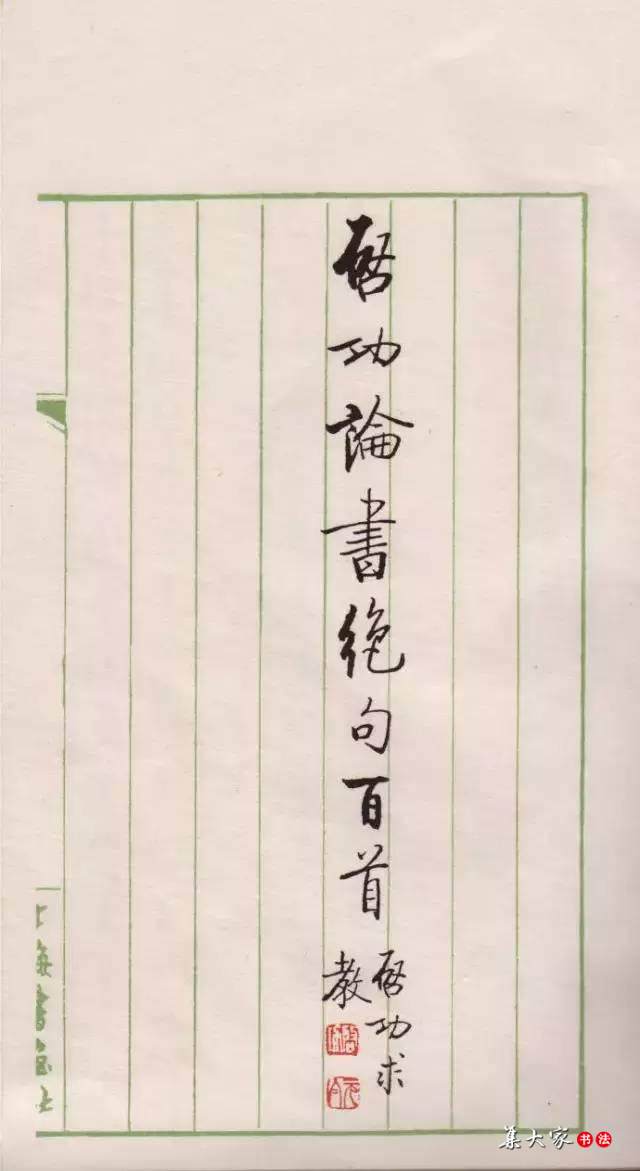 启功論書絕句百首
启功求
教
上海書画社
集大家 书法